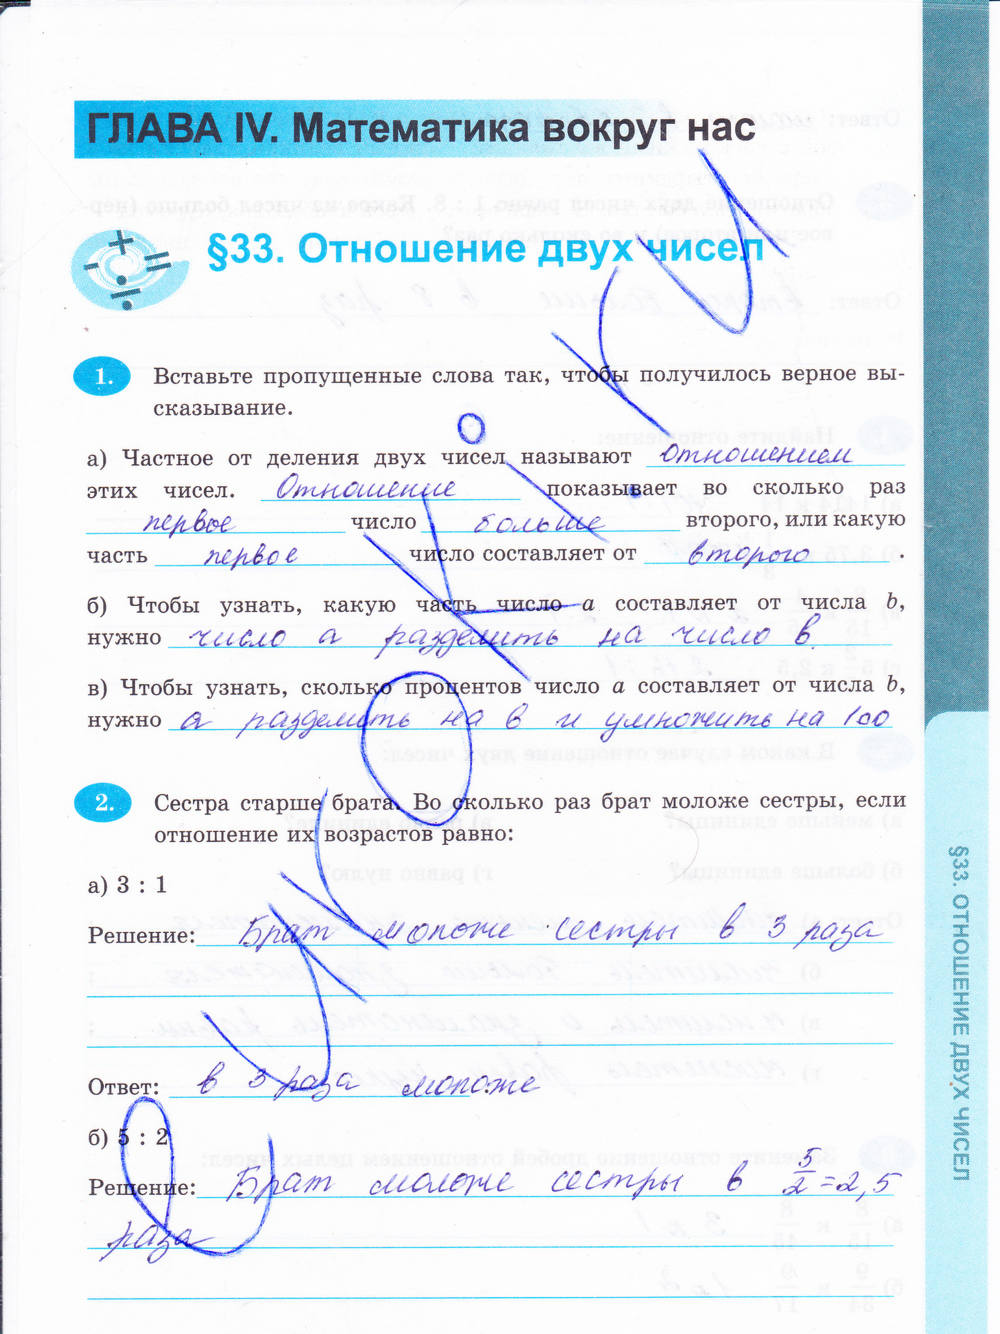 ГЛАВА IV. Математика вокруг нас
§33. Отношение двух чисел
1. Вставьте пропущенные слова так, чтобы получилось верное вы-
сказывание.
а) Частное от деления двух чисел называют отношением
этих чисел. Отношение показывает во сколько раз
первое число больше второго, или какую
часть первое число составляет от второго .
б) Чтобы узнать, какую часть число a составляет от числа b,
нужно число а разделить на число в.
в) Чтобы узнать, сколько процентов число a составляет от числа b,
нужно а разделить на в и умножить на 100
2. Сестра старше брата. Во сколько раз брат моложе сестры, если
отношение их возрастов равно:
а) 3 : 1
Решение: Брат моложе сестры в 3 раза
Ответ: в 3 раза моложе
б) 5 : 2
Решение: Брат моложе сестры в 5/2 = 2,5
раза
§33. ОТНОШЕНИЕ ДВУХ ЧИСЕЛ